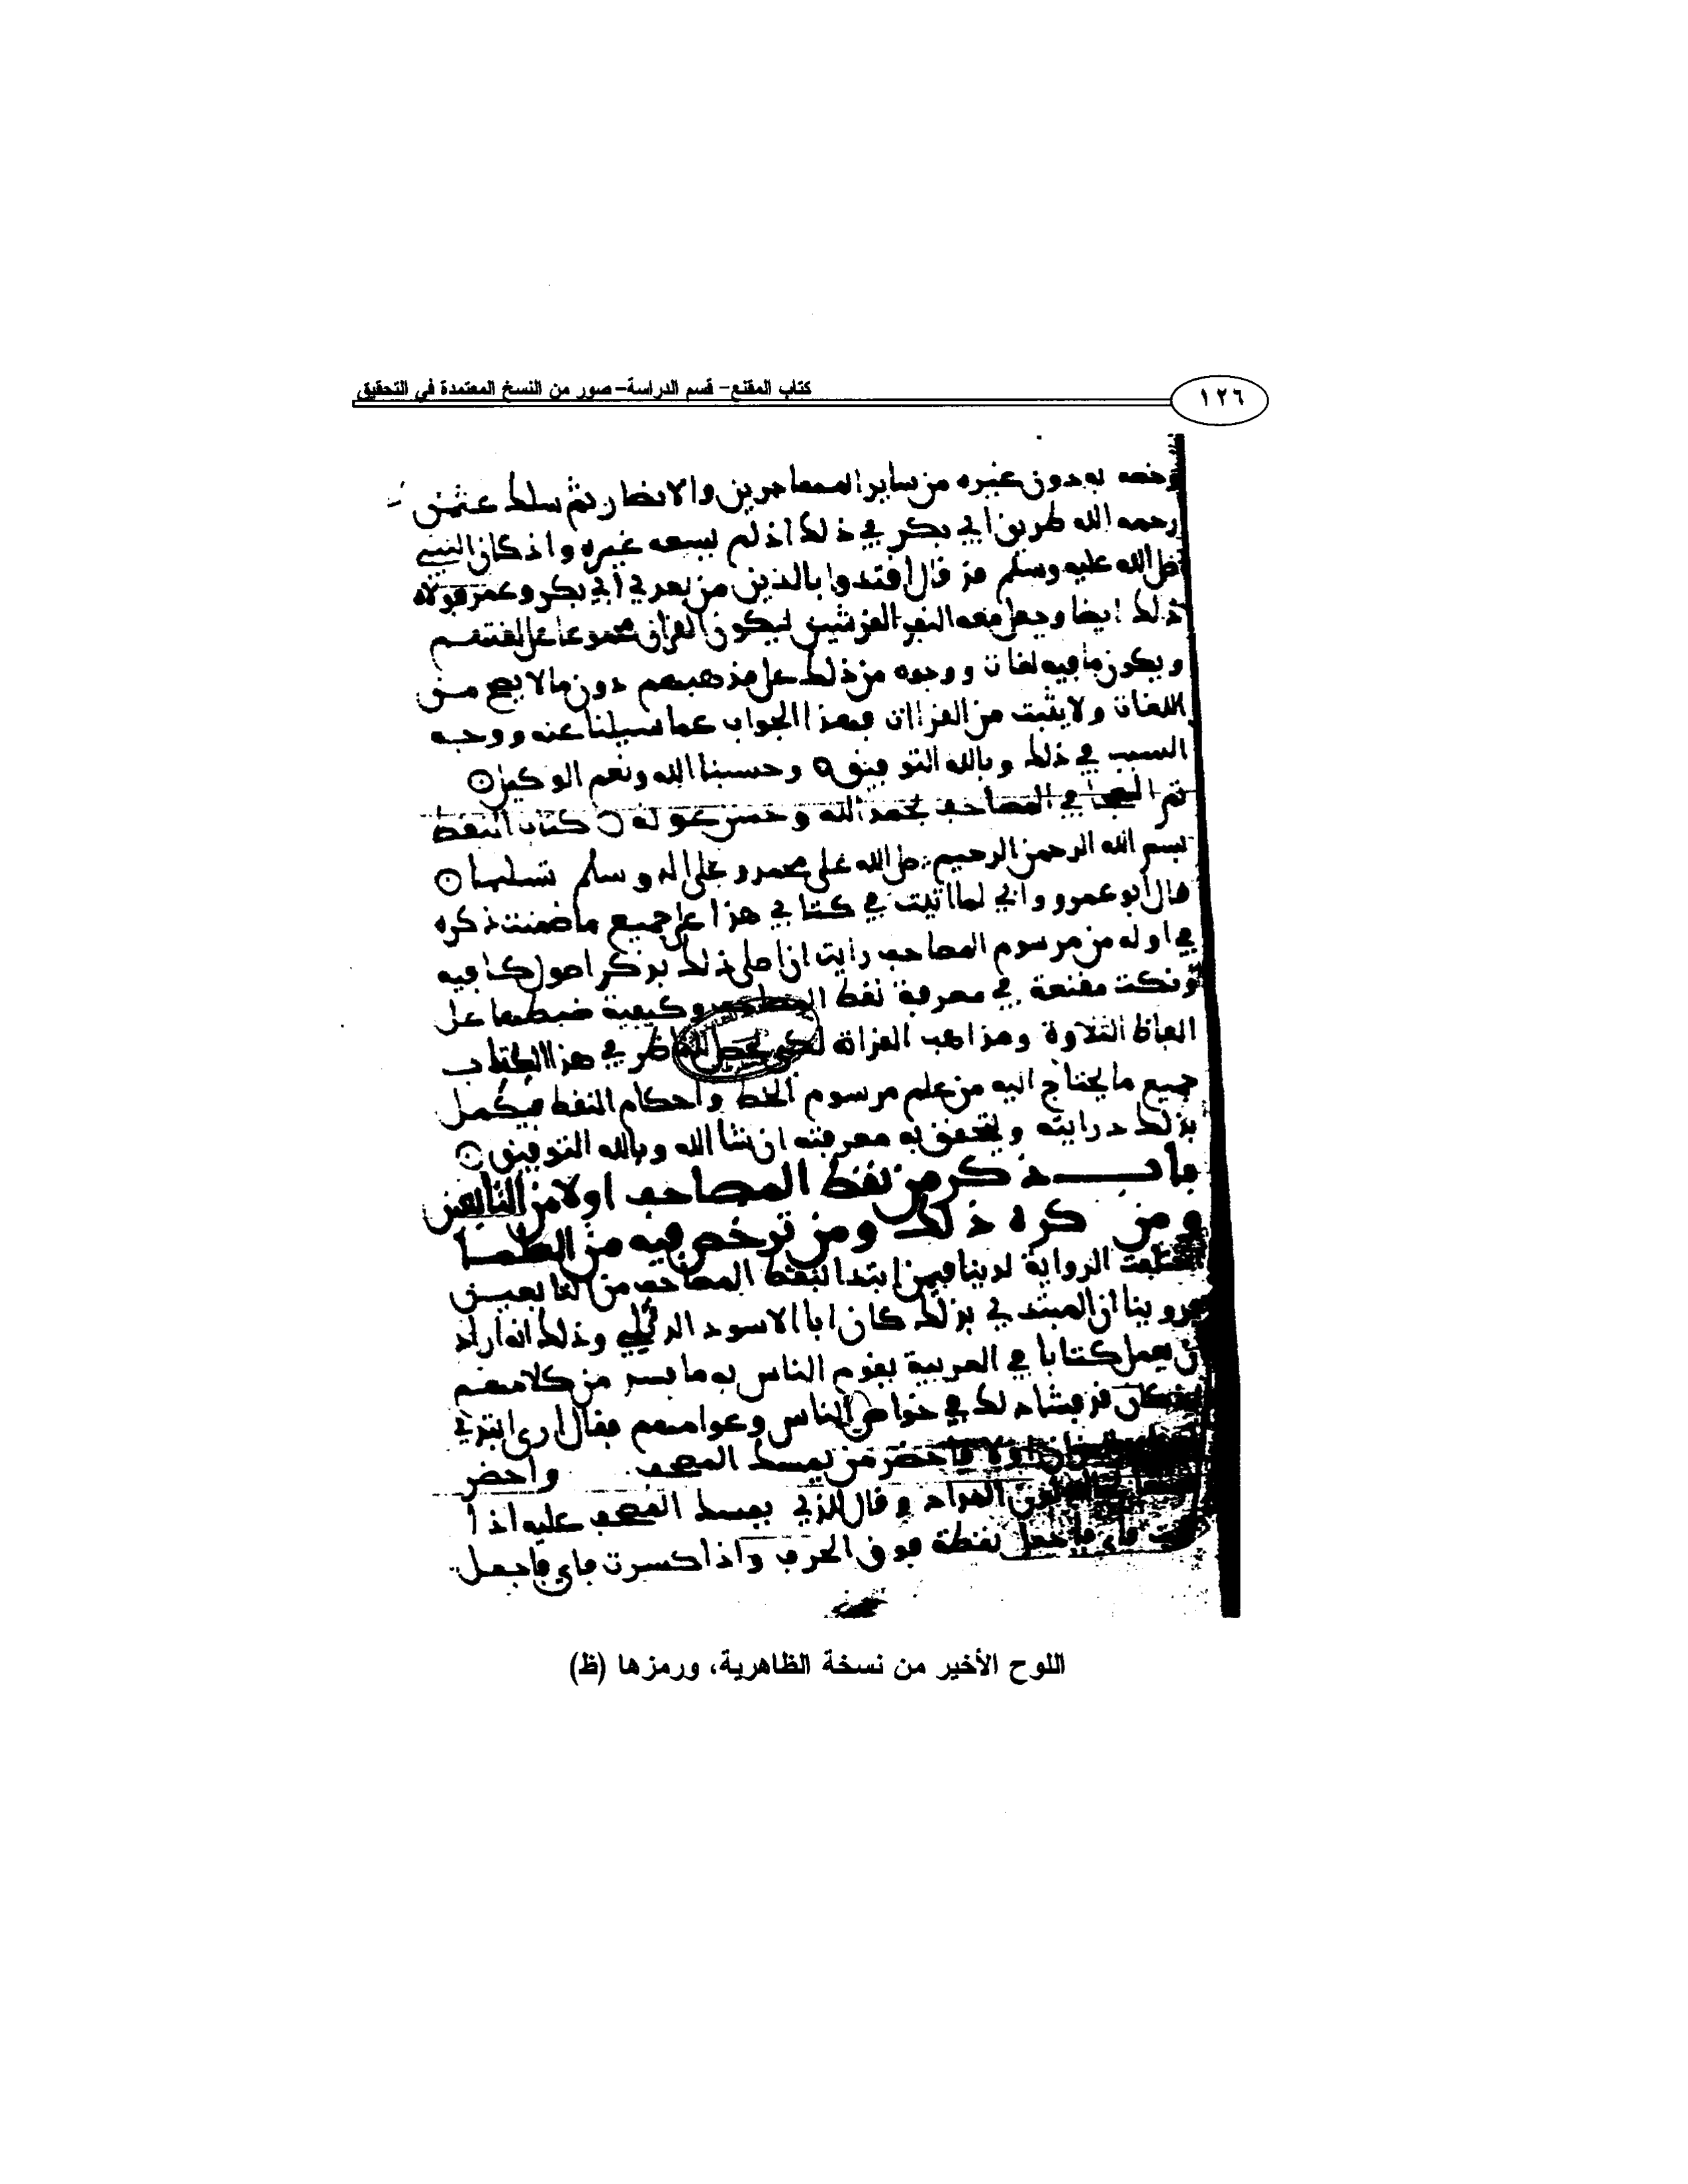 كتاب المقنع- قسم الدراسة- صور من النسخ المعتمدة في التحقيق
١٢٦
وخصه به دون غيره من ساير المهاجرين والانصار ثم سلط عثمن
رحمه الله طريق ابي بكر في ذلك اذ لم يسعه غيره واذ كان النبي
صلى الله عليه وسلم قد قال اقتدوا بالذين من بعدي ابي بكر وعمر فولاه
ذلك ايضا وجعل معه النفر القرشيين ليكون القران مجموعا على لغتهم
ويكون ما فيه لغات ووجوه من ذلك على مذهبهم دون ما لا يصح من
اللغات ولا يثبت من القراان فهذا الجواب عما سيلنا عنه ووجه
السبب في ذلك وبالله التوفيق وحسبنا الله ونعم الوكيل
تم الهجا في المصاحف بحمد الله وحسن عونه كتاب النقط
بسم الله الرحمن الرحيم صلى الله على محمد وعلى اله وسلم تسليما
قال ابو عمرو واني لما اتيت في كتابي هذا على جميع ما ضمنت ذكره
في اوله من مرسوم المصاحف رايت ان اصلي ذلك بذكر اصول كافيه
ونكت مقنعة في معرفة نقط وكيفية ضبطها على
الفاظ التلاوة ومذاهب القراة لكي يحصل للناظر في هذا الكتاب
جميع ما يحتاج اليه من علم مرسوم الخط واحكام النقط فيكمل
بذلك درايته وتتحقق به معرفته ان شا الله وبالله التوفيق
باب ذكر من نقط المصاحف اولا من التابعين
ومن كره ذلك ومن ترخص فيه من العلما
اختلفت الرواية لدينا فيمن ابتدا بنقط المصاحف من التابعين
فروينا ان المبتدي بذلك كان ابا الاسود الدئلي وذلك انه اراد
ان يعمل كتابا في العربية يقوم الناس به ما فسد من كلامهم
اذ كان قد فشا ذلك في خواص الناس وعوامهم فقال ارى ابتدي
اولا فاحضر من يمسك المصحف واحضر
المداد وقال للذي يمسك المصحف عليه اذا
فاي فاجعل نقطة فوق الحرف واذا كسرت فاي فاجعل
اللوح الأخير من نسخة الظاهرية، ورمزها (ظ)